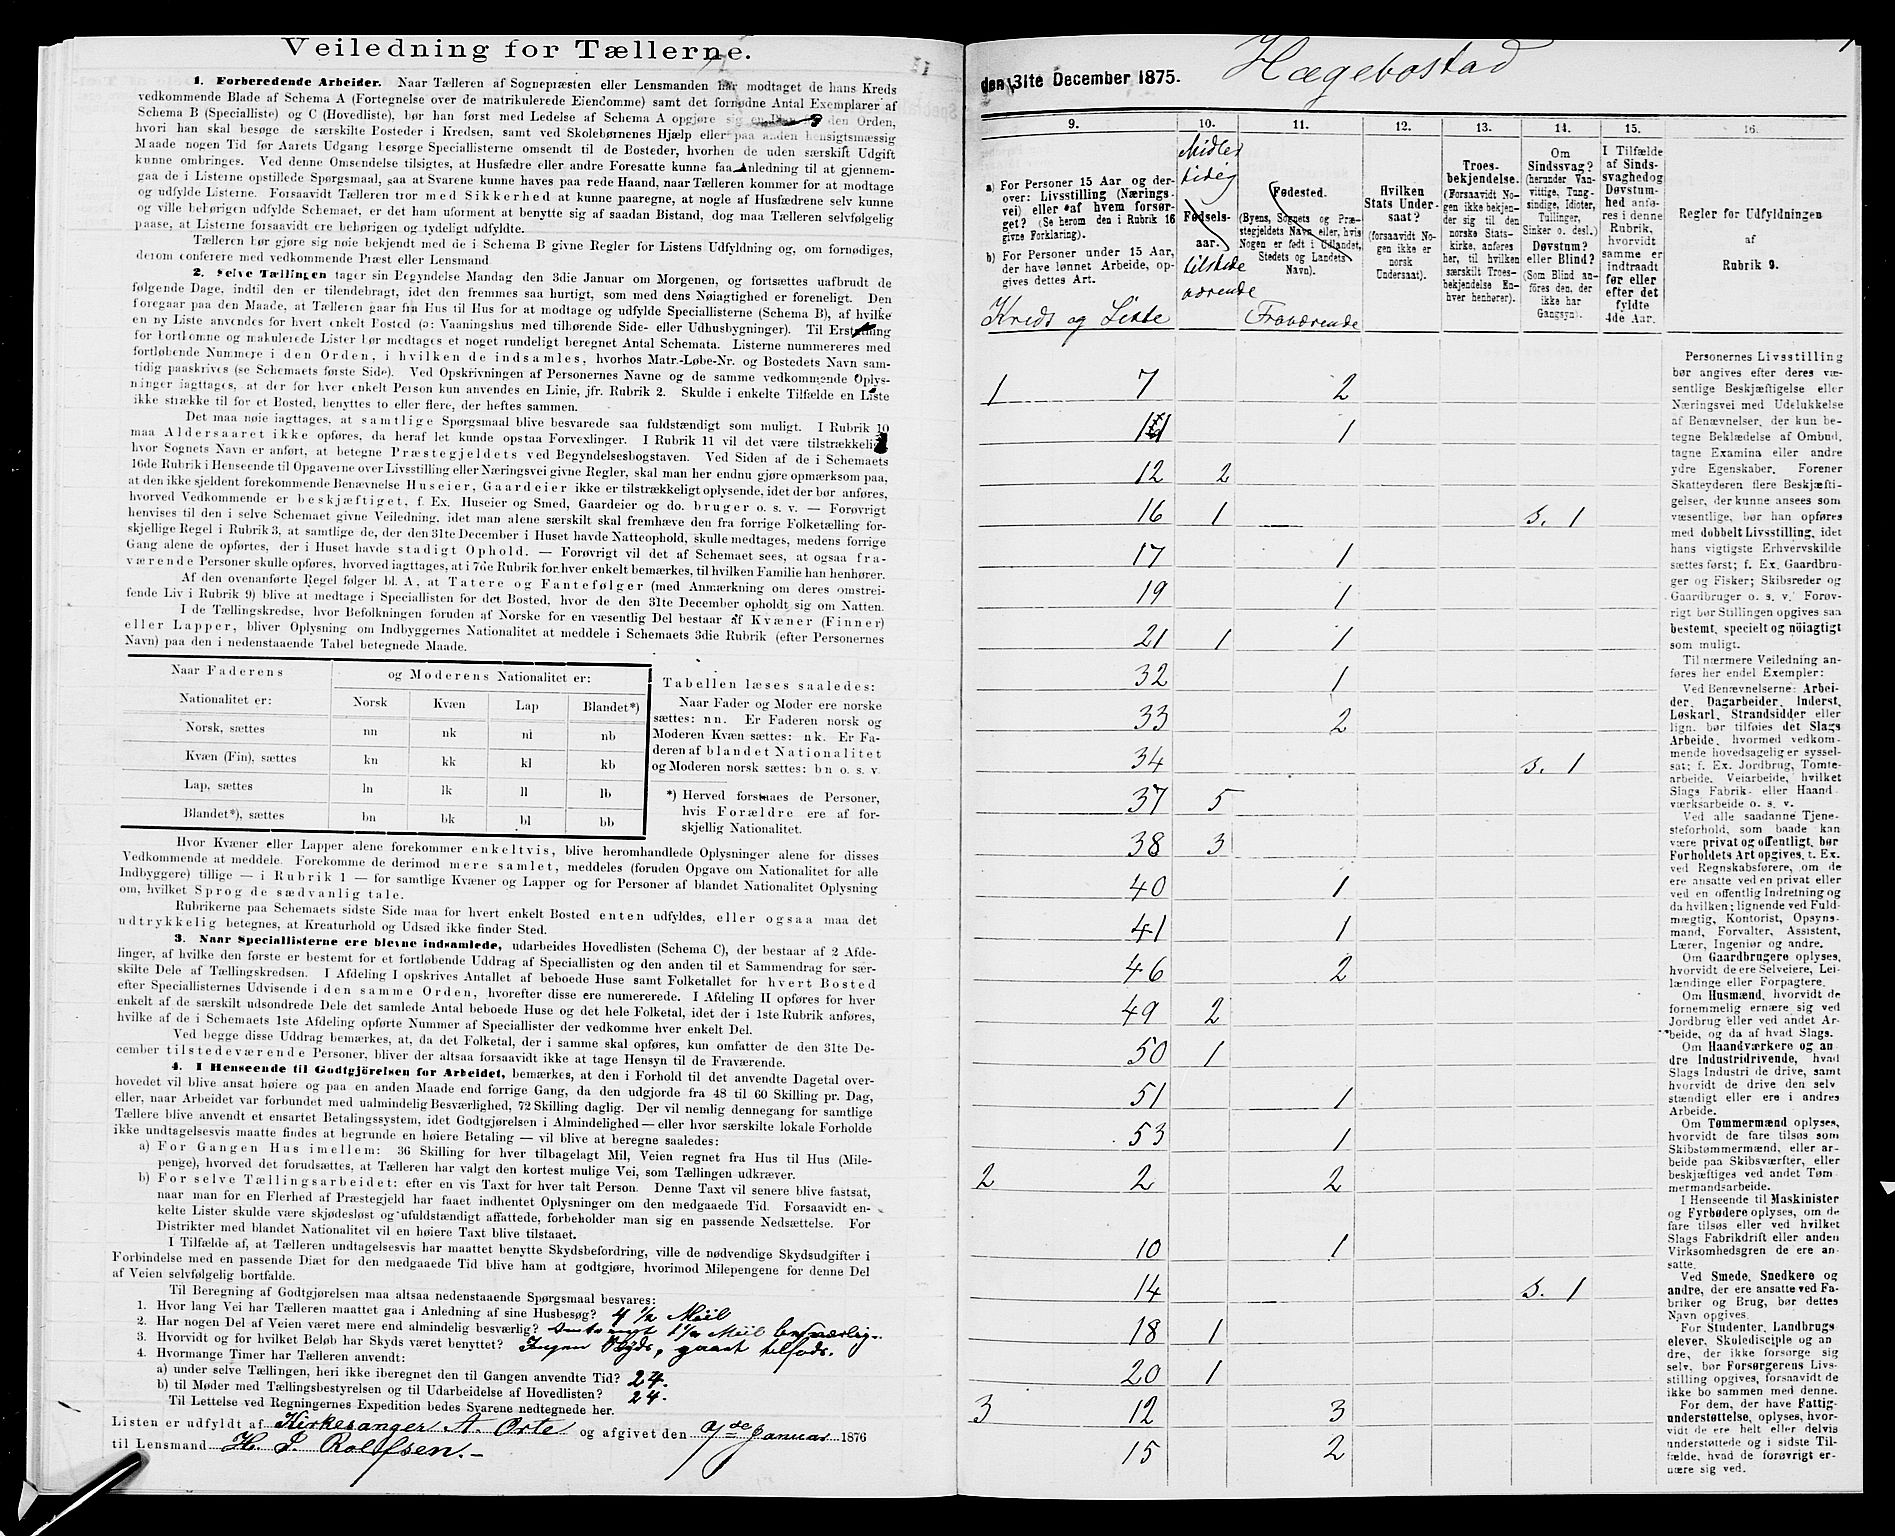 Veiledning for Tællerne.
1. Forberedende Arbeider. Naar Tælleren af Sognepræsten eller Lensmanden har modtaget de hans Kreds
vedkommende Blade af Schema A (Fortegnelse over de matrikulerede Eiendomme) samt det fornødne Antal Exemplarer af
Schema B (Specialliste) og C (Hovedliste), bør han først med Ledelse af Schema A opgjøre sig en den Orden,
hvori han skal besøge de særskilte Bosteder i Kredsen, samt ved Skolebørnenes Hjælp eller paa anden hensigtsmæssig
Maade nogen Tid før Aarets Udgang besørge Speciallisterne omsendt til de Bosteder, hvorhen de uden særskilt Udgift
kunne ombringes. Ved denne Omsendelse tilsigtes, at Husfædre eller andre Foresatte kunne faa Anledning til at gjennem-
gaa de i Listerne opstillede Spørgsmaal, saa at Svarene kunne haves paa rede Haand, naar Tælleren kommer for at modtage
og udfylde Listerne. Forsaavidt Tælleren tror med Sikkerhed at kunne paaregne, at nogle af Husfædrene selv kunne
og ville behørigen udfylde Schemaet, er det ham uforment at benytte sig af saadan Bistand, dog maa Tælleren selvfølgelig
paase, at Listerne forsaavidt ere behørigen og tydeligt udfyldte.
Tælleren bør gjøre sig nøie bekjendt med de i Schema B givne Regler for Listens Udfyldning og, om fornødiges,
derom conferere med vedkommende Præst eller Lensmand.
2. Selve Tællingen tager sin Begyndelse Mandag den 3die Januar om Morgenen, og fortsættes uafbrudt de
følgende Dage, indtil den er tilendebragt, idet den fremmes saa hurtigt, som med dens Nøiagtighed er foreneligt. Den
foregaar paa den Maade, at Tælleren gaar fra Hus til Hus for at modtage og udfylde Speciallisterne (Schema B), af hvilke
en ny Liste anvendes for hvert enkelt Bosted (ɔ: Vaaningshus med tilhørende Side- eller Udhusbygninger). Til Erstatning
for bortkomne og makulerede Lister bør medtages et noget rundeligt beregnet Antal Schemata. Listerne nummereres med
fortløbende Nummere i den Orden, i hvilken de indsamles, hvorhos Matr.-Løbe-Nr. og Bostedets Navn sam-
tidig paaskrives (se Schemaets første Side). Ved Opskrivningen af Personernes Navne og de samme vedkommende Oplys-
ninger iagttages, at der for hver enkelt Person kun anvendes en Linie, jfr. Rubrik 2. Skulde i enkelte Tilfælde en Liste
ikke strække til for et Bosted, benyttes to eller flere, der heftes sammen.
Det maa nøie iagttages, at samtlige Spørgsmaal blive besvarede saa fuldstændigt som muligt. I Rubrik 10
maa Aldersaaret ikke opføres, da heraf let kunde opstaa Forvexlinger. I Rubrik 11 vil det være tilstrækkeligt,
hvor Sognets Navn er anført, at betegne Præstegjeldets ved Begyndelsesbogstaven. Ved Siden af de i Schemaets
16de Rubrik i Henseende til Opgaverne over Livsstilling eller Næringsvei givne Regler, skal man her endnu gjøre opmærksom paa,
at den ikke sjeldent forekommende Benævnelse Huseier, Gaardeier ikke er tilstrækkeligt oplysende, idet der bør anføres,
hvorved Vedkommende er beskjæftiget, f. Ex. Huseier og Smed, Gaardeier og do. bruger o. s. v. — Forøvrigt
henvises til den i selve Schemaet givne Veiledning, idet man alene særskilt skal fremhæve den fra forrige Folketælling for-
skjellige Regel i Rubrik 3, at samtlige de, der den 31te December i Huset havde Natteophold, skulle medtages, medens forrige
Gang alene de opførtes, der i Huset havde stadigt Ophold. — Forøvrigt vil det af Schemaet sees, at ogsaa fra-
værende Personer skulle opføres, hvorved iagttages, at i 7de Rubrik for hver enkelt bemærkes, til hvilken Familie han henhører.
Af den ovenanførte Regel følger bl. A., at Tatere og Fantefølger (med Anmærkning om deres omstrei-
fende Liv i Rubrik 9) blive at medtage i Speciallisten for det Bosted, hvor de den 31te December opholdt sig om Natten.
I de Tællingskredse, hvor Befolkningen foruden af Norske for en væsentlig Del bestaar af Kvæner (Finner)
eller Lapper, bliver Oplysning om Indbyggernes Nationalitet at meddele i Schemaets 3die Rubrik (efter Personernes
Navn) paa den i nedenstaaende Tabel betegnede Maade.
Naar Faderens og Moderens Nationalitet er:
Nationalitet er: Norsk Kvæn Lap Blandet*)
Norsk, sættes nn nk nl nb
Kvæn (Fin), sættes kn kk kl kb
Lap, sættes ln lk ll lb
Blandet*), sættes bn bk bl bb
Tabellen læses saaledes:
Naar Fader og Moder ere norske
sættes: nn. Er Faderen norsk og
Moderen Kvæn sættes: nk. Er Fa-
deren af blandet Nationalitet
og Moderen norsk sættes: bn o. s. v.
*) Herved forstaaes de Personer,
hvis Forældre ere af for-
skjellig Nationalitet.
Hvor Kvæner eller Lapper alene forekommer enkeltvis, blive heromhandlede Oplysninger alene for disses
Vedkommende at meddele. Forekomme de derimod mere samlet, meddeles (foruden Opgave om Nationalitet for alle
Indbyggere) tillige — i Rubrik 1 — for samtlige Kvæner og Lapper og for Personer af blandet Nationalitet Oplysning
om, hvilket Sprog de sædvanlig tale.
Rubrikerne paa Schemaets sidste Side maa for hvert enkelt Bosted enten udfyldes, eller ogsaa maa det
udtrykkelig betegnes, at Kreaturhold og Udsæd ikke finder Sted.
3. Naar Speciallisterne ere blevne indsamlede, udarbeides Hovedlisten (Schema C), der bestaar af 2 Afde-
linger, af hvilke den første er bestemt for et fortløbende Uddrag af Speciallisten og den anden til et Sammendrag for sær-
skilte Dele af Tællingskredsen. I Afdeling I opskrives Antallet af beboede Huse samt Folketallet for hvert Bosted
efter Speciallisternes Udvisende i den samme Orden, hvorefter disse ere nummererede. I Afdeling II opføres for hver
enkelt af de særskilt udsondrede Dele det samlede Antal beboede Huse og det hele Folketal, idet der i 1ste Rubrik anføres,
hvilke af de i Schemaets 1ste Afdeling opførte Nummer af Speciallister der vedkomme hver enkelt Del.
Ved begge disse Uddrag bemærkes, at, da det Folketal, der i samme skal opføres, kun omfatter de den 31te De-
cember tilstedeværende Personer, bliver der altsaa forsaavidt ikke at tage Hensyn til de Fraværende.
4. I Henseende til Godtgjörelsen for Arbeidet, bemærkes, at den i Forhold til det anvendte Dagetal over-
hovedet vil blive ansat høiere og paa en anden Maade end forrige Gang, da den udgjorde fra 48 til 60 Skilling pr. Dag,
eller, naar Arbeidet var forbundet med ualmindelig Besværlighed, 72 Skilling daglig. Der vil nemlig dennegang for samtlige
Tællere blive anvendt et ensartet Betalingssystem, idet Godtgjørelsen i Almindelighed — eller hvor særskilte lokale Forholde
ikke undtagelsesvis maatte findes at begrunde en høiere Betaling — vil blive at beregne saaledes:
a) For Gangen Hus imellem: 36 Skilling for hver tilbagelagt Mil, Veien regnet fra Hus til Hus (Mile-
penge), hvorved det forudsættes, at Tælleren har valgt den kortest mulige Vei, som Tællingen udkræver.
b) For selve Tællingsarbeidet: efter en vis Taxt for hver talt Person. Denne Taxt vil senere blive fastsat,
naar man for en Flerhed af Præstegjeld har faaet indhentet Oplysninger om den medgaaede Tid. Forsaavidt en-
kelte Lister skulde være skjødesløst og ufuldstændigt affattede, forbeholder man sig en passende Nedsættelse. For
Distrikter med blandet Nationalitet vil en høiere Taxt blive tilstaaet.
I Tilfælde af, at Tælleren undtagelsesvis har maattet benytte Skydsbefordring, ville de nødvendige Skydsudgifter i
Forbindelse med en passende Diæt for den medgaaede Tid blive ham at godtgjøre, hvorimod Milepengene for denne Del
af Veien selvfølgelig bortfalde.
Til Beregning af Godtgjörelsen maa altsaa nedenstaaende Spørgsmaal besvares:
1. Hvor lang Vei har Tælleren maattet gaa i Anledning af sine Husbesøg? 4 1/2 Miil
2. Har nogen Del af Veien været mere end almindelig besværlig? 1 1/2 Miil besværlig.
3. Hvorvidt og for hvilket Beløb har Skyds været benyttet? Ingen Skyds, gaaet tilfods.
4. Hvormange Timer har Tælleren anvendt:
a) under selve Tællingen, heri ikke iberegnet den til Gangen anvendte Tid? 24.
b) til Møder med Tællingsbestyrelsen og til Udarbeidelse af Hovedlisten? 24.
Til Lettelse ved Regningernes Expedition bedes Svarene nedtegnede her.
Listen er udfyldt af Kirkesanger A. Orte og afgivet den 7de Januar 1876
til Lensmand H. P. Rolfsen.
den 31te December 1875. Hægebostad
9. 10. 11. 12. 13. 14. 15. 16.
a) For Personer 15 Aar og der-
over: Livsstilling (Nærings-
vei) eller af hvem forsør-
get? (Se herom den i Rubrik 16
givne Forklaring).
b) For Personer under 15 Aar,
der have lønnet Arbeide, op-
gives dettes Art.
Kreds og Liste
Midler
tidig
Fødsels-
aar.
tilstede
værende
Fødested.
(Byens, Sognets og Præ-
stegjeldets Navn, eller, hvis
Nogen er født i Udlandet,
Stedets og Landets
Navn).
Fraværende
Hvilken
Stats Under-
saat?
(forsaavidt No-
gen ikke er
norsk
Undersaat).
Troes-
bekjendelse.
(Forsaavidt No-
gen ikke bekjen-
der sig til den
norske Stats-
kirke, anføres
her, til hvilken
særskilt Troes-
bekjendelse En-
hver henhører).
Om
Sindssvag?
(herunder Van-
vittige, Tung-
sindige, Idioter,
Tullinger,
Sinker o. desl.)
Døvstum?
eller Blind?
(Som Blind an-
föres den, der
ikke har
Gangsyn).
I Tilfælde
af Sinds-
svaghed og
Døvstum-
hed anfø-
res i denne
Rubrik,
hvorvidt
samme er
indtraadt
før eller
efter det
fyldte
4de Aar.
Regler for Udfyldningen
af
Rubrik 9.
1 7 2
11 1
12 2
16 1 s. 1
17 1
19 1
21 1 1
32 1
33 2
34 s. 1
37 5
38 3
40 1
41 1
46 2
49 2
50 1
51 1
53 1
2 2 2
10 1
14 s. 1
18 1
20 1
3 12 3
15 2
Personernes Livsstilling
bør angives efter deres væ-
sentlige Beskjæftigelse eller
Næringsvei med Udelukkelse
af Benævnelser, der kun be-
tegne Beklædelse af Ombud,
tagne Examina eller andre
ydre Egenskaber. Forener
Skatteyderen flere Beskjæfti-
gelser, der kunne ansees som
væsentlige, bør han opføres
med dobbelt Livsstilling, idet
hans vigtigste Erhvervskilde
sættes først; f. Ex. Gaardbru-
ger og Fisker; Skibsreder og
Gaardbruger o. s. v. Forøv-
rigt bør Stillingen opgives saa
bestemt, specielt og nöiagtigt
som muligt.
Til nærmere Veiledning an-
føres her endel Exempler:
Ved Benævnelserne: Arbei-
der, Dagarbeider, Inderst,
Løskarl, Strandsidder eller
lign. bør tilføies det Slags
Arbeide, hvormed vedkom-
mende hovedsagelig er syssel-
sat; f. Ex. Jordbrug, Tomte-
arbeide, Veiarbeide, hvilket
Slags Fabrik- eller Haand-
værksarbeide o. s. v.
Ved alle saadanne Tjene-
steforhold, som baade kan
være privat og offentligt, bør
Forholdets Art opgives, f. Ex.
ved Regnskabsførere, om de
ere ansatte ved en privat eller
ved en offentlig Indretning og
da hvilken; lignende ved Fuld-
mægtig, Kontorist, Opsyns-
mand, Forvalter, Assistent,
Lærer, Ingeniør og andre.
Om Gaardbrugere oplyses,
hvorvidt de ere Selveiere, Lei-
lændinge eller Forpagtere.
Om Husmænd, hvorvidt de
fornemmelig ernære sig ved
Jordbrug eller ved andet Ar-
beide, og da af hvad Slags.
Om Haandværkere og an-
dre Industridrivende, hvad
Slags Industri de drive, samt
hvorvidt de drive den selv
stændigt eller ere i andres
Arbeide.
Om Tømmermænd oplyses,
hvorvidt de fare tilsøs som
Skibstømmermænd, eller ar-
beide paa Skibsværfter, eller
beskjæftiges ved andet Tøm-
mermandsarbeide.
I Henseende til Maskinister
og Fyrbødere oplyses, om de
fare tilsøs eller ved hvilket
Slags Fabrikdrift eller anden
Virksomhedsgren de ere an-
satte.
Ved Smede, Snedkere og
andre, der ere ansatte ved Fa-
briker og Brug, bør dettes
Navn opgives.
For Studenter, Landbrugs-
elever, Skoledisciple og an-
dre, der ikke forsørge sig
selv, bør Forsørgerens Livs-
stilling opgives, forsaavidt de
ikke bo sammen med denne.
For dem, der have Fattig-
understøttelse, oplyses, hvor-
vidt de ere helt eller delvis
understøttede og i sidste Til-
fælde, hvad de forøvrigt er-
nære sig ved.